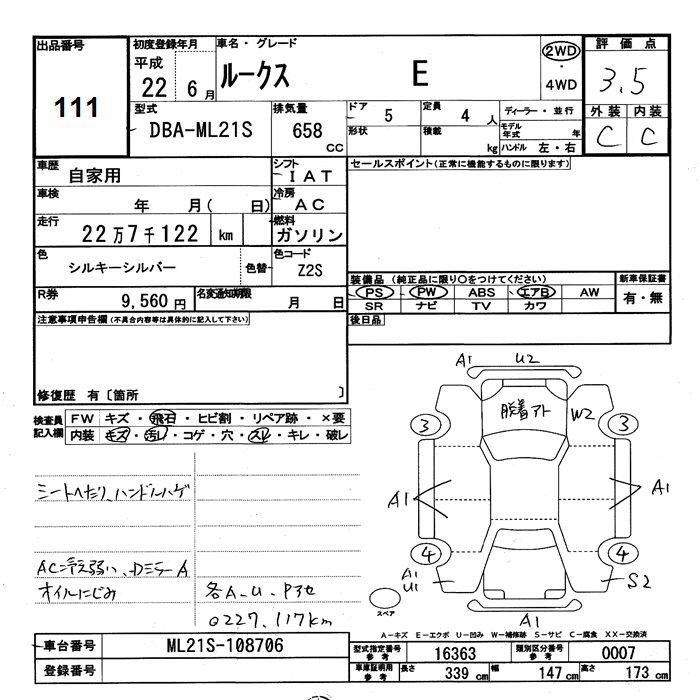 出品番号 初度登録年月 車名・グレード 2WD 評価点
平成 22 6月 ルークス E ・ 4WD 3.5
111 型式 排気量 ドア 5 定員 4人 ディーラー・並行 外装 内装
DBA-ML21S 658 CC 形状 積載 kg モデル年式 年 ハンドル 左・右 C C
車歴 自家用 シフト IAT セールスポイント(正常に機能するものに限ります)
車検 年 月( 日) 冷房 AC
走行 22万7千122 km 燃料 ガソリン
色 シルキーシルバー 色替 色コード Z2S
装備品 (純正品に限り〇をつけてください) 新車保証書
R券 9,560円 名変通知期限 月 日 PS PW ABS エアB AW 有・無
SR ナビ TV カワ
注意事項申告欄(不具合内容等は具体的に記入して下さい) 後日品
修復歴 有〔箇所 〕
検査員記入欄 FW キズ・飛石・ヒビ割・リペア跡・×要
内装 キズ・汚レ・コゲ・穴・スレ・キレ・破レ
A1 U2
脱着アト W2
3 3
A1 A1
4 4
A1 U1 S2
スペア A1
シートへたり、ハンドルハゲ
AC冷え弱い、DミラーA
オイルにじみ 各A-U Pアセ
0227,117km
A-キズ E-エクボ U-凹み W-補修跡 S-サビ C-腐食 XX-交換済
車台番号 ML21S-108706 型式指定番号 参考 16363 類別区分番号 参考 0007
登録番号 車庫証明用 参考 長さ 339cm 幅 147cm 高さ 173cm